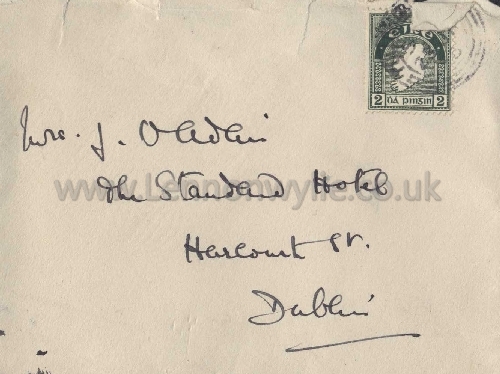 ÉIRE
2 dá pingin 2
Mrs. J.
www.Lennonwylie.co.uk
The Standard Hotel
Harcourt St.
Dublin